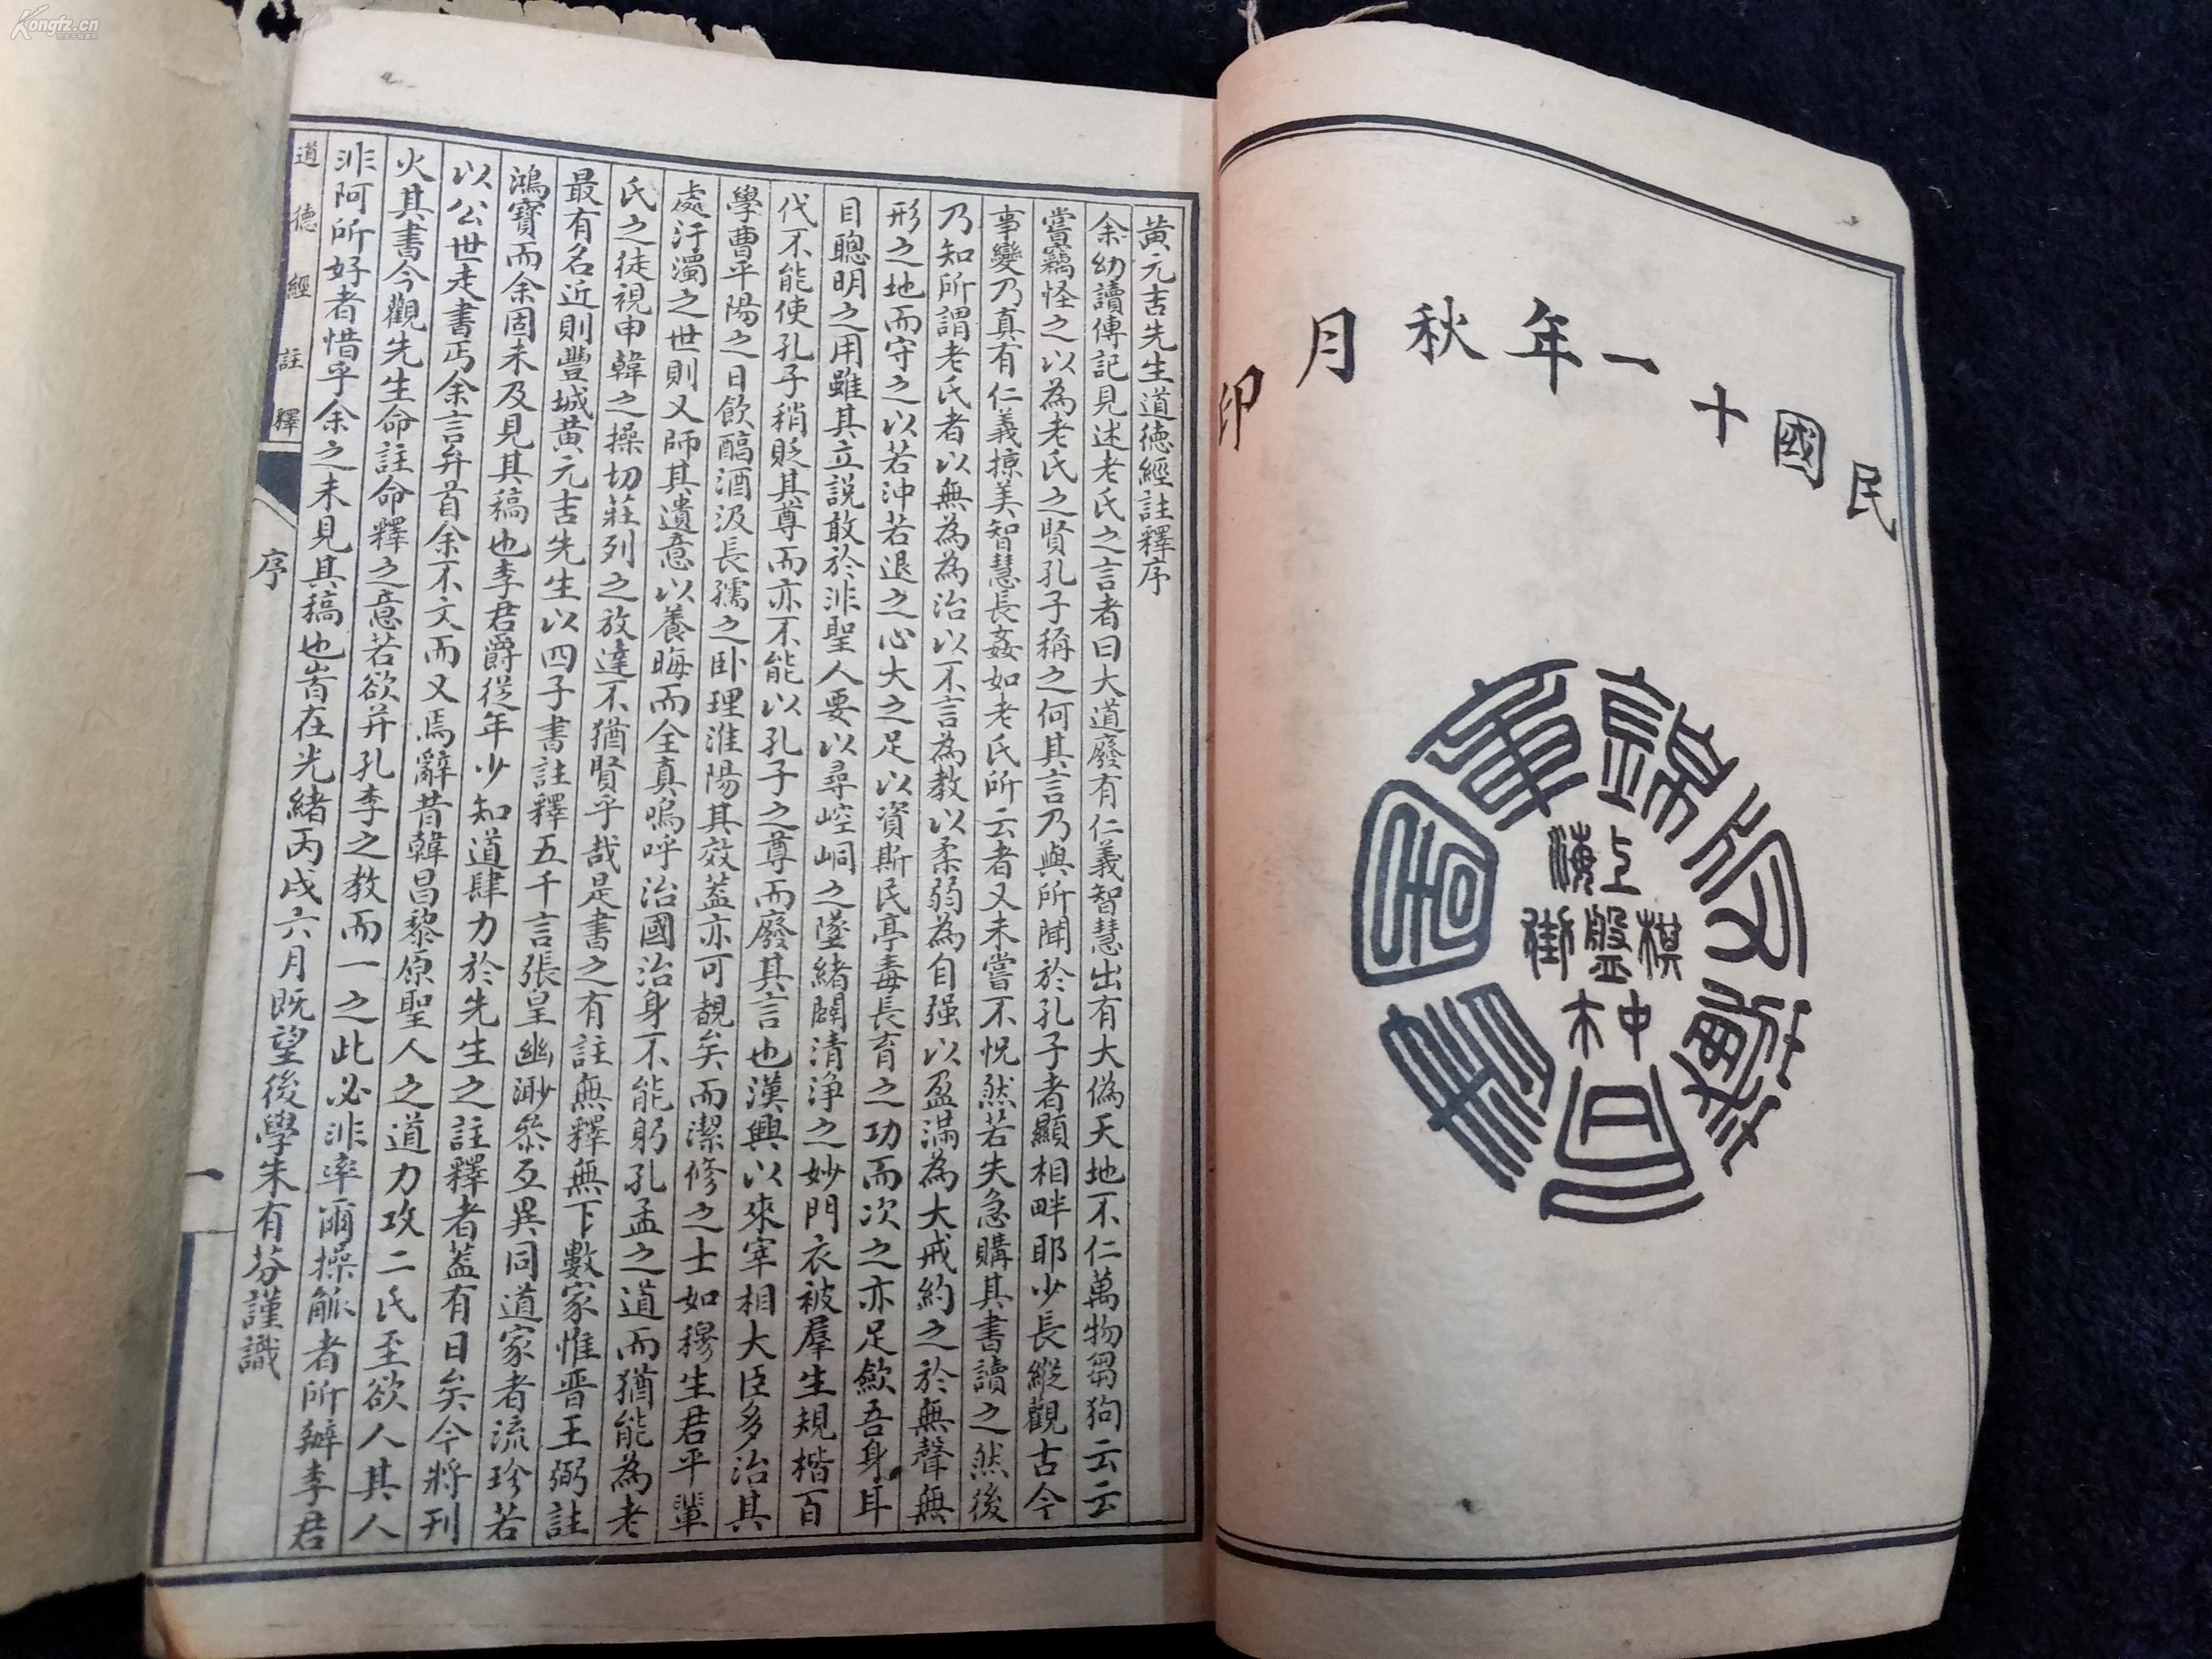 民國十一年秋月印
錦章圖書
上海
棋盤街
中市
黃元吉先生道德經註釋序
余幼讀傳記見述老氏之言者曰大道廢有仁義智慧出有大偽天地不仁萬物芻狗云云
嘗竊怪之以為老氏之賢孔子稱之何其言乃與所聞於孔子者顯相畔耶少長縱觀古今
事變乃真有仁義掠美智慧長姦如老氏所云者又未嘗不怳然若失急購其書讀之然後
乃知所謂老氏者以無為為治以不言為教以柔弱為自强以盈滿為大戒約之於無聲無
形之地而守之以若沖若退之心大之足以資斯民亭毒長育之功而次之亦足歛吾身耳
目聰明之用雖其立說敢於非聖人要以尋崆峒之墜緒闢清淨之妙門衣被羣生規楷百
代不能使孔子稍貶其尊而亦不能以孔子之尊而廢其言也漢興以來宰相大臣多治其
學曹平陽之日飲醇酒汲長孺之卧理淮陽其效蓋亦可覩矣而潔修之士如穆生君平輩
處汙濁之世則又師其遺意以養晦而全真嗚呼治國治身不能躬孔孟之道而猶能為老
氏之徒視申韓之操切莊列之放達不猶賢乎哉是書之有註無釋無下數家惟晉王弼註
最有名近則豐城黃元吉先生以四子書註釋五千言張皇幽渺叅互異同道家者流珍若
鴻寶而余固未及見其稿也李君爵從年少知道肆力於先生之註釋者蓋有日矣今將刊
以公世走書丐余言弁首余不文而又焉辭昔韓昌黎原聖人之道力攻二氏至欲人其人
火其書今觀先生命註命釋之意若欲并孔李之教而一之此必非率爾操觚者所辦李君
非阿所好者惜乎余之未見其稿也旹在光緒丙戌六月既望後學朱有芬謹識
道德經註釋
序
一
Kongfz.cn